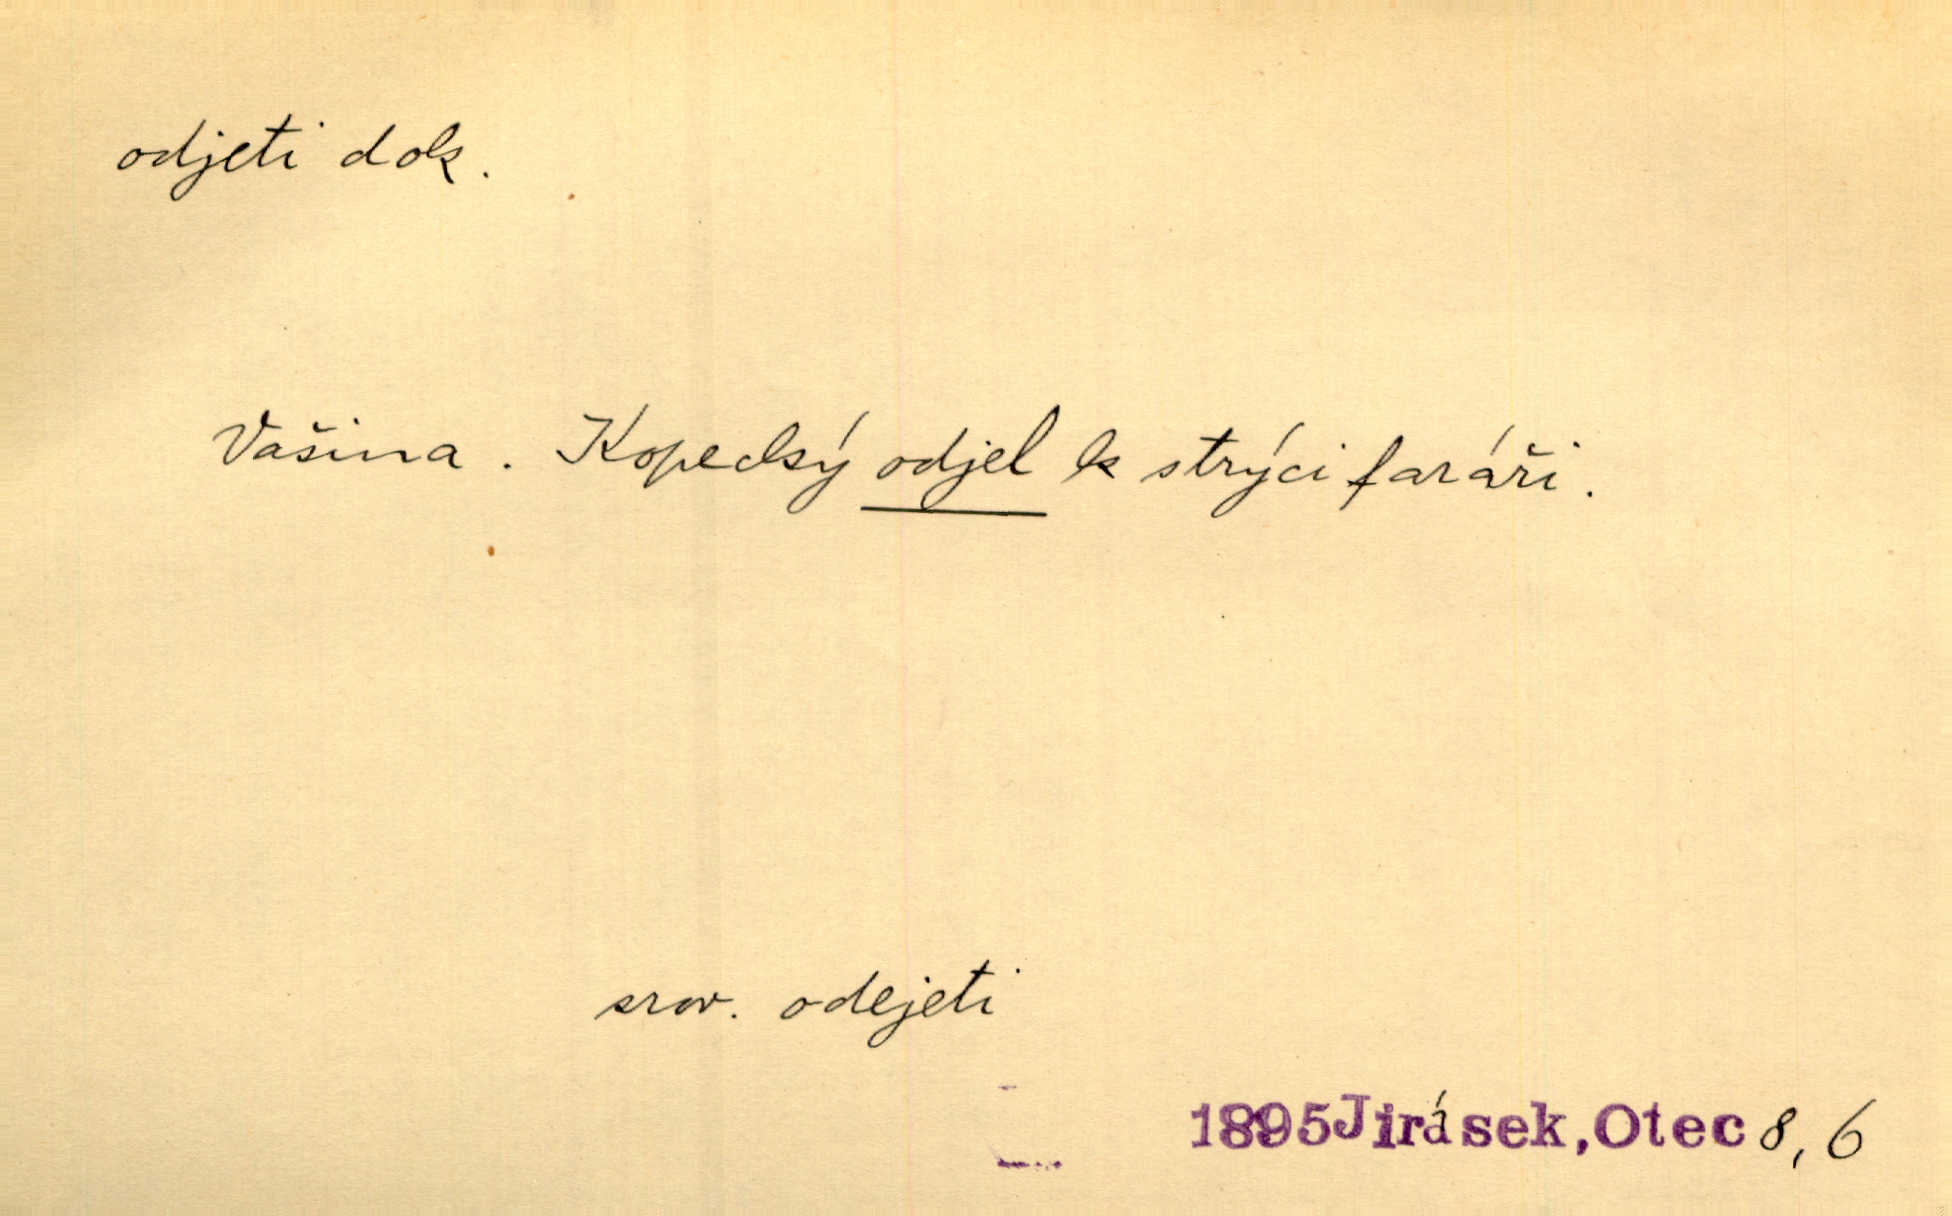 odjeti dok.
Vašina. Kopecký odjel k strýci faráři.
srov. odejeti
1895 Jirásek, Otec 8, 6